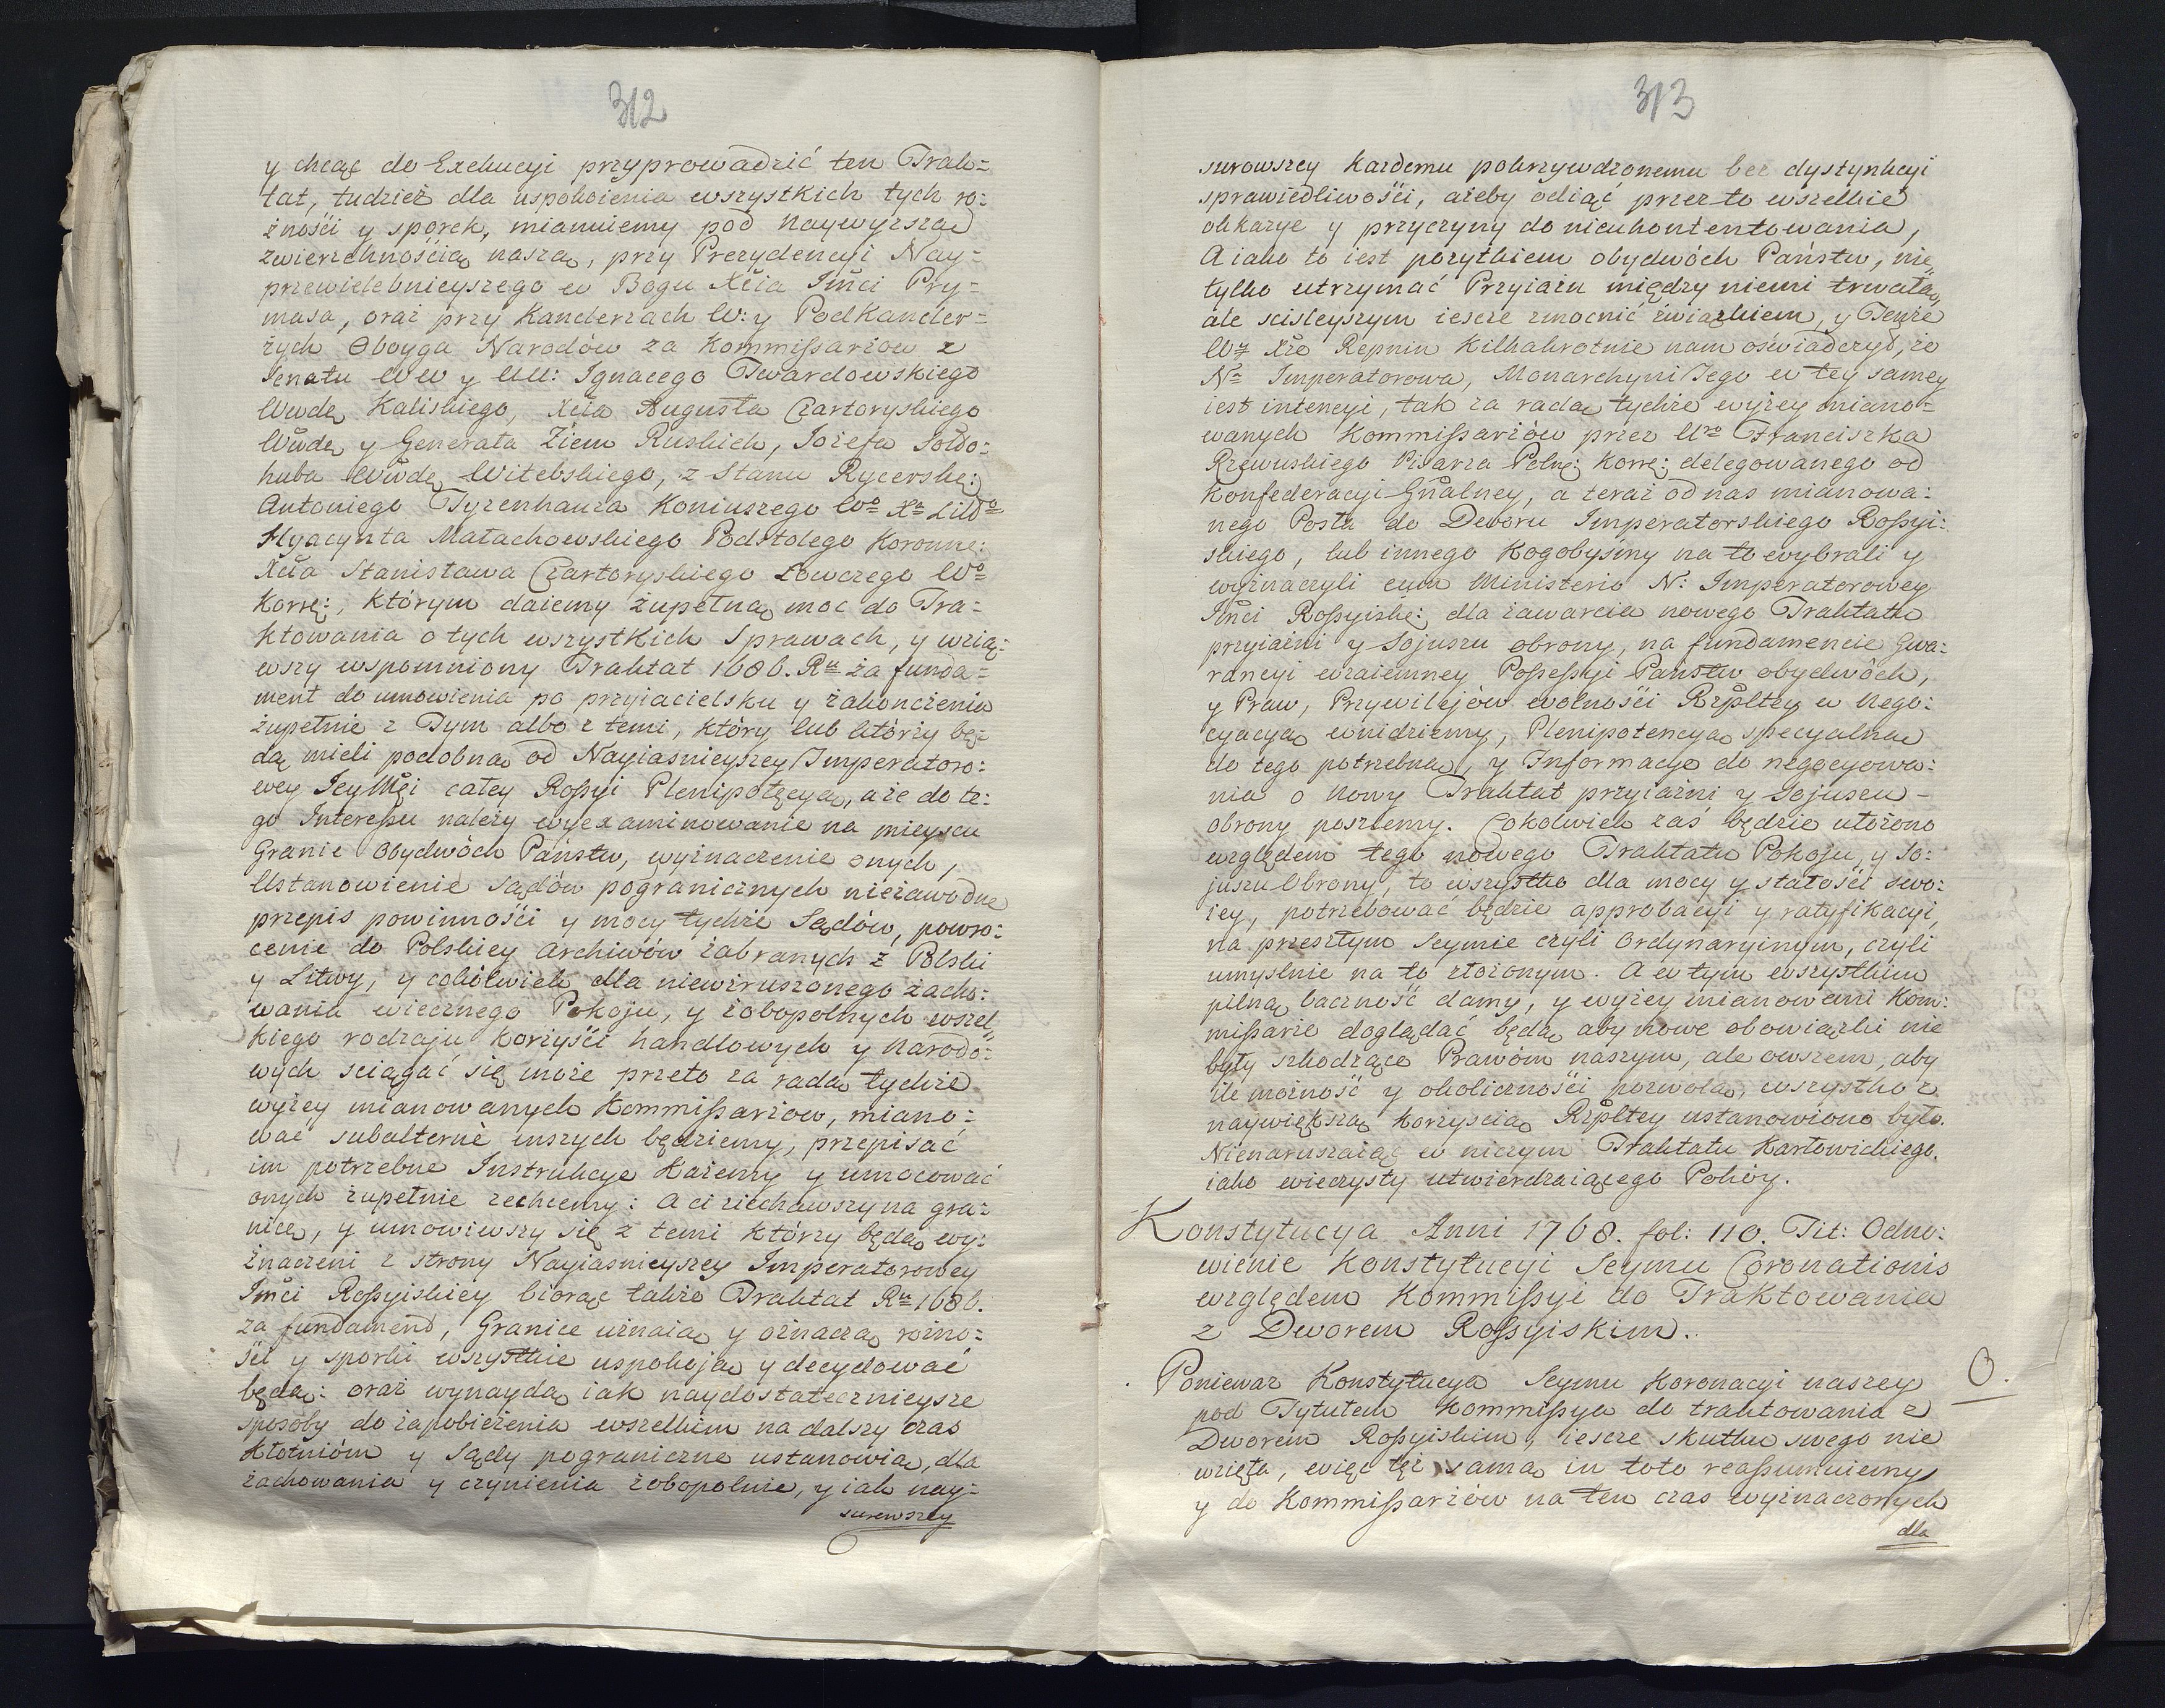 312
y chcąc do Exekucyi przyprowadzić ten Trak=
tat, tudzież dla uspokoienia wszystkich tych ro:
żności y sporek, mianuiemy pod naywyższą
zwierzchnością naszą, przy Prezydencyi Nay=
przewielebnieyszego w Bogu Xcia Jmci Pry=
masa, oraz przy Kanclerzach W: y PodKancler=
rzych Oboyga Narodów za Kommissarzow z
Senatu WW y UU: Ignacego Twardowskiego
Wwdę Kaliskiego, Xcia Augusta Czartoryskiego
Wwdę y Generała Ziem Ruskich, Jozefa Sołło:
huba Wwdę Witebskiego, z Stanu Rycerske:
Antoniego Tyzenhauza Koniuszego Wo Xa Litto
Hyacynta Małachowskiego Podstolego Koronne:
Xcia Stanisława Czartoryskiego Łowczego Wo
Korrę:, Którym daiemy zupełną moc do Tra=
ktowania o tych wszystkich Sprawach, y wzią:
wszy wspomniony Traktat 1686. Ru za funda=
ment do umowienia po przyiacielsku y zakonczenia
zupełnie z Tym albo z temi, który lub którzy bę:
dą mieli podobną od Nayiasnieyszey Imperatoro:
wey JeyMci całey Rossyi Plenipotęcyą, a że do te:
go Interessu należy wyexaminowanie na mieyscu
Granic Obydwóch Państw, wyznaczenie onych,
Ustanowienie sądów pogranicznych niezawodne
przepis powinności y mocy tychże Sądów, powro:
cenie do Polskiey Archiwów zabranych z Polski
y Litwy, y cokolwiek dla niewzruszonego zacho:
wania wiecznego Pokoju, y zobopolnych wszel
kiego rodzaju korzyści handlowych y Narodo:
wych sciągać się może przeto za radą tychże
wyżey mianowanych Kommissarzow, miano:
wać subalternè inszych będziemy, przepisać
im potrzebne Instrukcye Każemy y umocować
onych zupełnie zechcemy: A ci ziechawszy na gra:
nicę, y umowiwszy się z temi Którzy będą wy:
znaczeni z strony Nayiasnieyszey Imperatorowey
Jmci Rossyiskiey biorąc także Traktat Ru 1686.
za fundament, Granice uznaią y oznaczą rożno:
ści y sporki wszystkie uspokoją y decydować
będą: oraz wynaydą iak naydostatecznieysze
sposoby do zapobieżenia wszelkim na dalszy czas
Kłotniom y Sądy pograniczne ustanowią, dla
zachowania y czynienia zobopolnie, y iak nay=
surowszey
313
surowszey każdemu pokrzywdzonemu bez dystynkcyi
sprawiedliwości, ażeby odiąć przez to wszelkie
okazye y przyczyny do nieukontentowania,
A iako to iest pożytkiem obydwóch Państw, nie
tylko utrzymać Przyiaźń między niemi trwałą,
ale scisleyszym iescze zmocnić związkiem, y Tenże
Wy Xże Repnin Kilkakrotnie nam oświadczył, że
Na Imperatorowa, Monarchyni Jego w tey samey
iest intencyi, tak za radą tychże wyżey miano=
wanych Kommissarzów przez Uro Franciszka
Rzewuskiego Pisarza Polnę: Korrę: delegowanego od
Konfederacyi Gnalney, a teraz od nas mianowa:
nego Posła do Dworu Imperatorskiego Rossyi:
skiego, lub innego Kogobysmy na to wybrali y
wyznaczyli cum Ministerio N: Imperatorowey
Jmci Rossyiske: dla zawarcia nowego Traktatu
przyiaźni y Sojuszu obrony, na fundamencie Gwa:
rancyi wzaiemney Possessyi Państw obydwóch,
y Praw, Przywilejów wolności Rzpltey w nego:
cyacyą wnidziemy, Plenipotencyą specyalną
do tego potrzebną, y Informacye do neggcyowa:
nia o nowy Traktat przyiaźni y Sojuszu -
obrony poszlemy. Cokolwiek zaś będzie ułożono
względem tego nowego Traktatu Pokoju, y So:
juszu Obrony, to wszystko dla mocy y stałości swo:
iey, potrzebować będzie approbacyi y ratyfikacyi,
na przeszłym Seymie czyli Ordynaryinym, czyli
umyslnie na to złożonym. A w tym wszystkim
pilną baczność damy, y wyżey mianowani Kom:
missarze doglądać będą, aby nowe obowiązki nie
były szkodzące Prawom naszym, ale owszem, aby
ile możność y okoliczności pozwolą, wszystko z
naywiększą korzyscią Rzpltey ustanowiono było.
Nienaruszaiąc w niczym Traktatu Karłowickiego.
iako wieczysty utwierdzaiącego Pokóy.
Konstytucya Anni 1768. fol: 110. Tit: Odno:
wienie Konstytucyi Seymu Coronationis
względem Kommissyi do Traktowania
z Dworem Rossyiskim.
Poniewaz Konstytucya Seymu Koronacyi naszey
O.
pod Tytułem Kommissya do traktowania z
Dworem Rossyiskim, iescze skutku swego nie
wzięła, więc tęż samą in toto reassumuiemy
y do Kommissarzów na ten czas wyznaczonych
dla